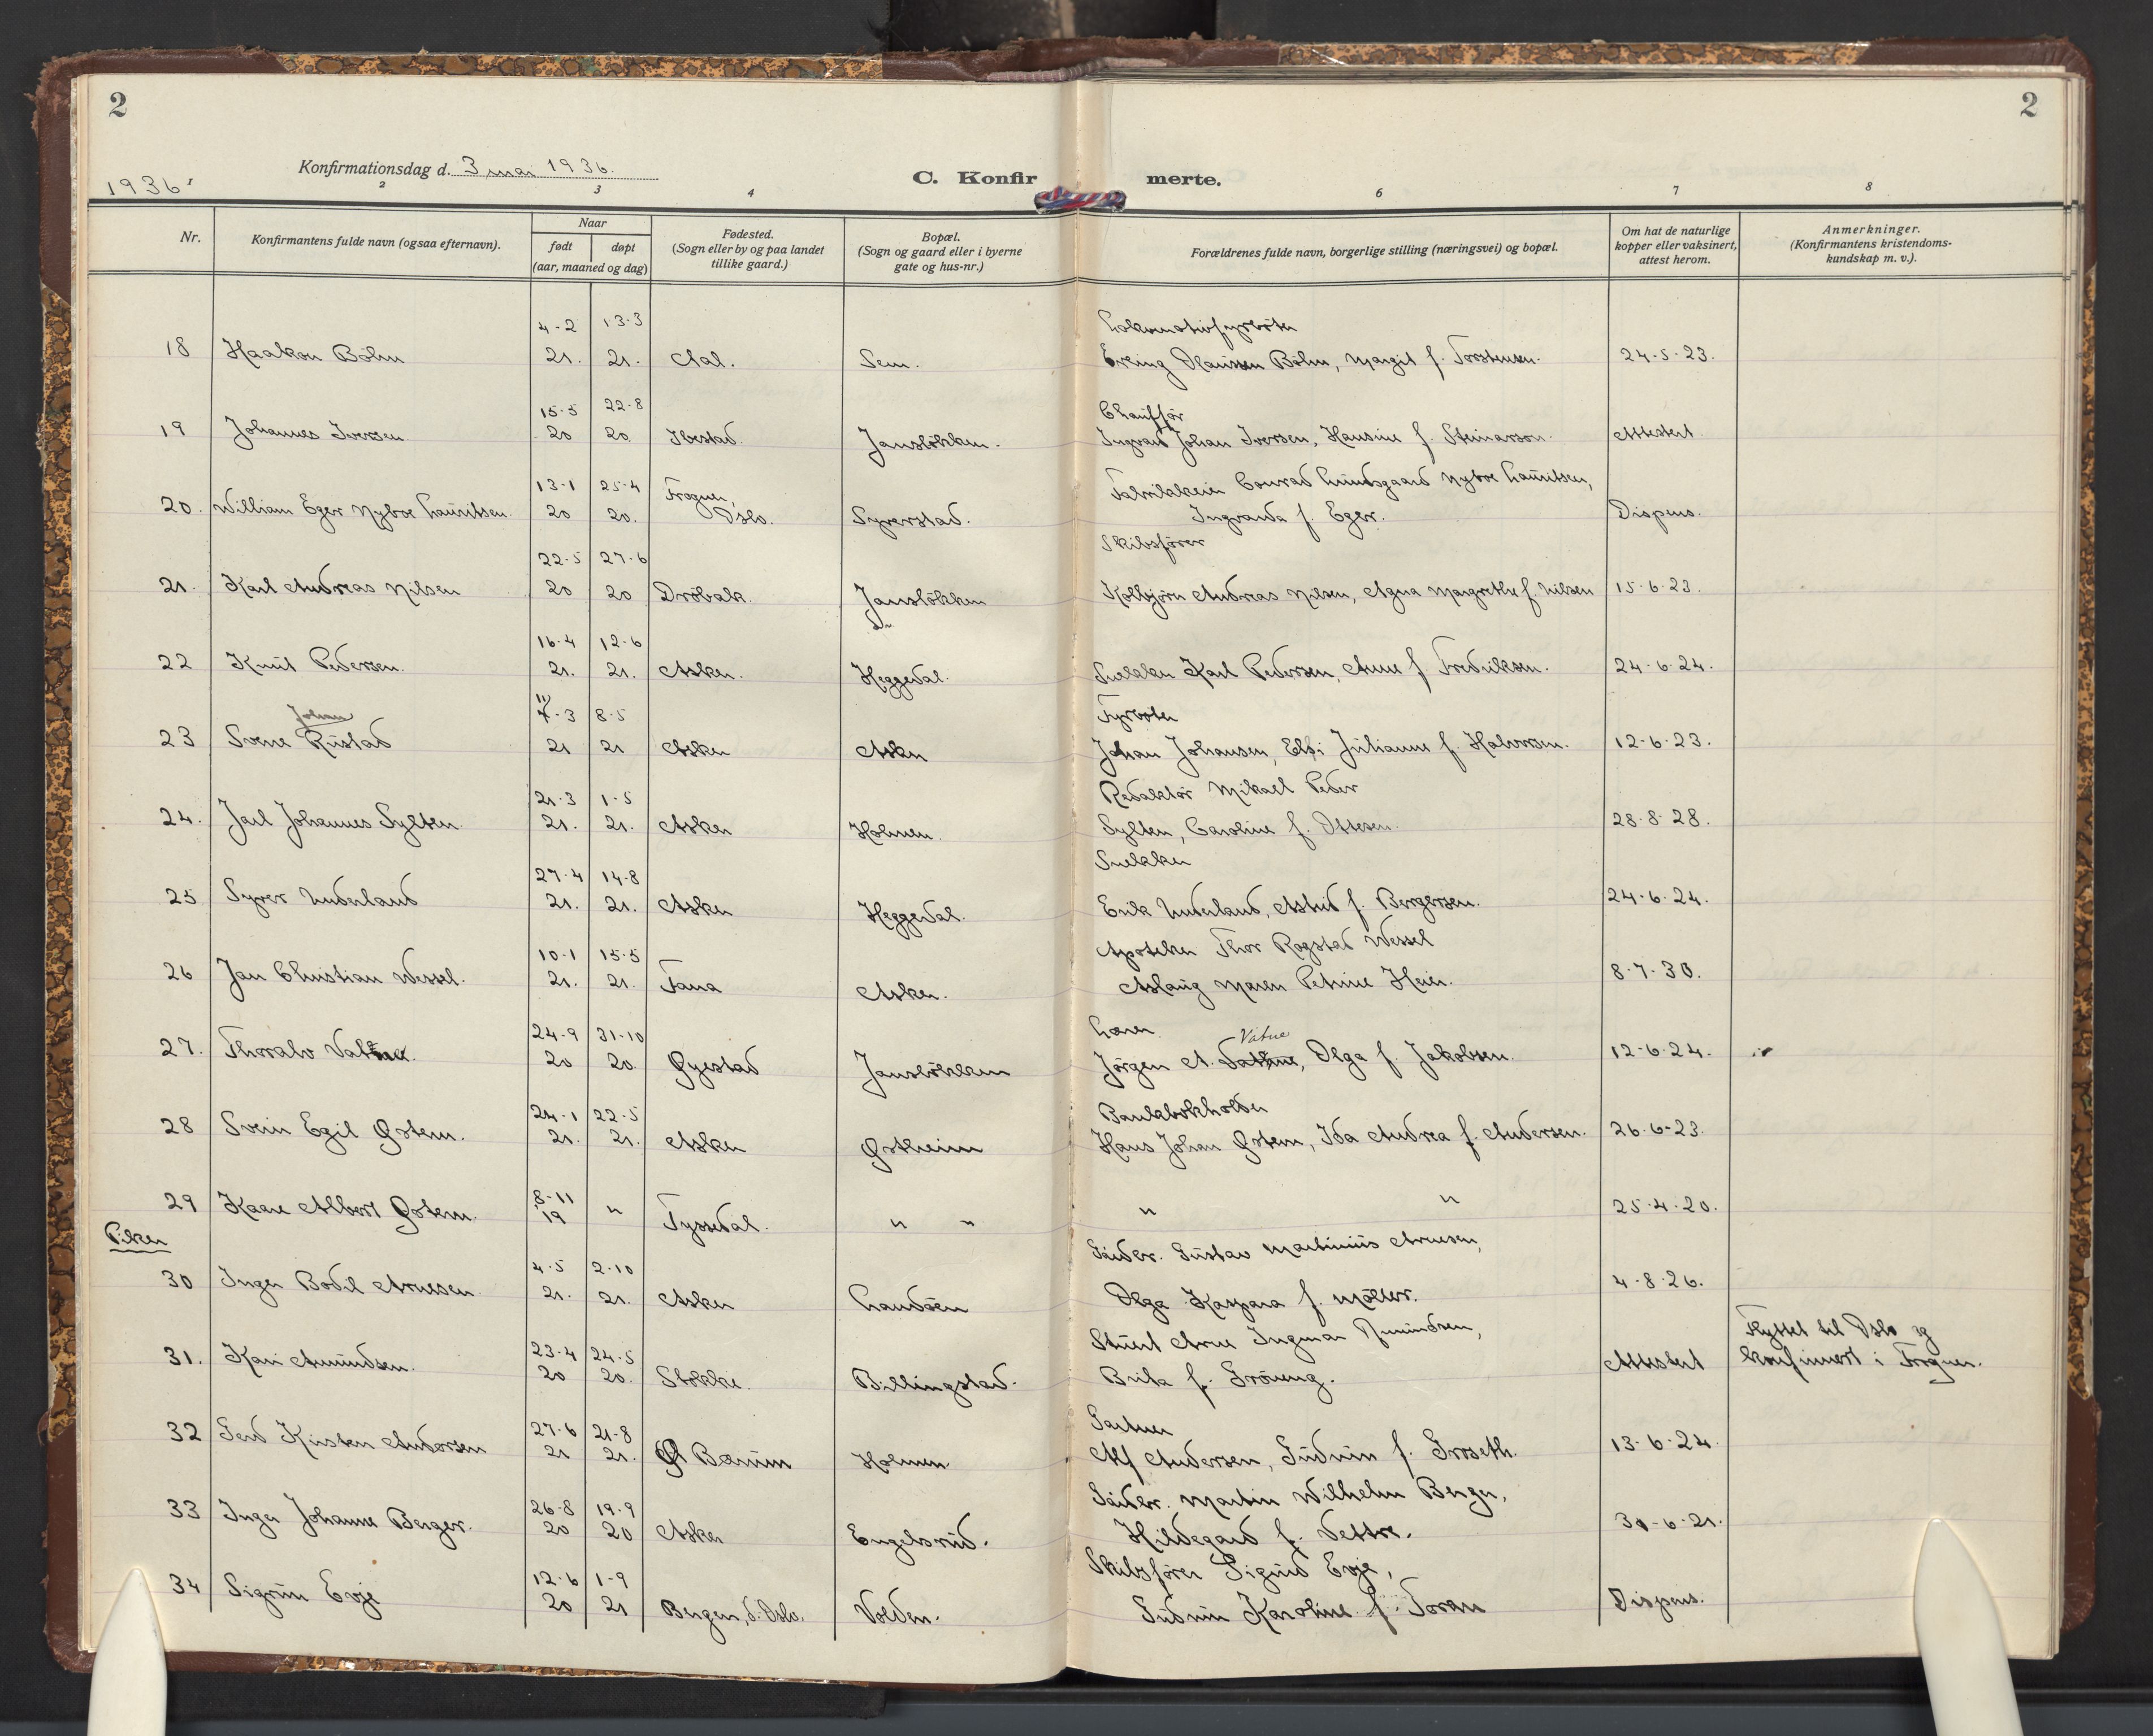 2
2
1936
Konfirmationsdag d. 3 mai 1936.
C. Konfirmerte.
2 3 4 6 7 8
Nr.
Konfirmantens fulde navn (ogsaa efternavn).
Naar
født
døpt
(aar, maaned og dag)
Fødested.
(Sogn eller by og paa landet
tillike gaard.)
Bopæl.
(Sogn og gaard eller i byerne
gate og hus-nr.)
Forældrenes fulde navn, borgerlige stilling (næringsvei) og bopæl.
Om hat de naturlige
kopper eller vaksinert,
attest herom.
Anmerkninger.
(Konfirmantens kristendoms-
kundskap m. v.).
4-2 13-3 Lokomotivfyrbøter
18 Haakon Böhn 21. 21. Aal. Sem. Erling Hansen Böhn, Margit f. Torstensen. 24-5-23.
15-5 22-8 Chauffør
19 Johannes Iversen 20 20 Ibestad. Janslökken. Ingvart Johan Iversen, Hansine f. Steinarson. Attestert
13-1 25-4 Frogner, Fabrikkeier Conrad Lundsgaard Nyboe Lauritsen,
20. William Eger Nyboe Lauritsen. 20 20. Oslo. Syverstad. Ingvarda f. Eger. Dispens.
22-5 27-6 Skibsfører
21. Karl Andreas Nilsen 20 20 Dröbak. Janslökken Kolbjörn Andreas Nilsen, Agna Margrethe f. Nilsen 15-6-23.
16-4 12-6
22 Knut Pedersen. 21. 21. Asker. Heggedal. Snekker Karl Pedersen, Anne f. Fredriksen. 24-6-24.
Johan 11 4-3 8-5 Fyrbøter
23 Sverre Rustad 21 21 Asker Asker Johan Johansen, Elfi Julianne f. Halvorsen. 12-6-23.
21-3 1-5 Redaktør Mikael Peder
24. Jarl Johannes Sylten 21. 21. Asker Holmen. Sylten, Caroline f. Ottesen. 28-8-28.
27-4 14-8 Snekker
25 Syver Underland 21. 21. Asker Heggedal. Erik Underland, Astrid f. Bergersen. 24-6-24.
10-1 15-5 Apoteker Thor Rogstad Wessel
26 Jan Christian Wessel. 21. 21. Fana Asker. Aslaug Maren Petrine Heier. 8-7-30.
24-9 31-10 Lærer Vatne
27. Thoralv Vatne. 20 20. Øyestad Janslökken Jørgen A. Vatne, Olga f. Jakobsen. 12-6-24.
24-1 22-5 Bankbokholder
28 Svein Egil Østern. 21. 21. Asker Østheim Hans Johan Østern, Ida Andrea f. Andersen. 26-6-23.
8-11
29 Kaare Albert Østern. 19 " Tyssedal. " " " " 25-4-20.
Piker
4-5 2-10 Gårdbr. Gustav Martinius Arnesen,
30 Inger Bodil Arnesen 21. 21. Asker Landöen Olga Kaspara f. Møller. 4-8-26.
23-4 24-5 Stuert Arne Ingmar Amundsen, Flyttet til Oslo og
31. Kari Amundsen. 20 20. Stokke. Billingstad. Brita f. Gröneng. Attestert konfirmert i Frogner.
27-6 21-8 Gartner
32 Gerd Kirsten Andersen 21 21. Ø Bærum Holmen Alf Andersen, Gudrun f. Groseth. 13-6-24.
26-8 19-9 Gårdbr. Martin Wilhelm Berger,
33 Inger Johanne Berger. 20 20 Asker Engelsrud. Hildegard f. Vettre. 30-6-21.
12-6 1-9 Skibsfører Sigurd Evje,
34 Sigrun Evje 20 21 Bergen, d. Oslo. Volden. Gudrun Karoline f. Toran Dispens.